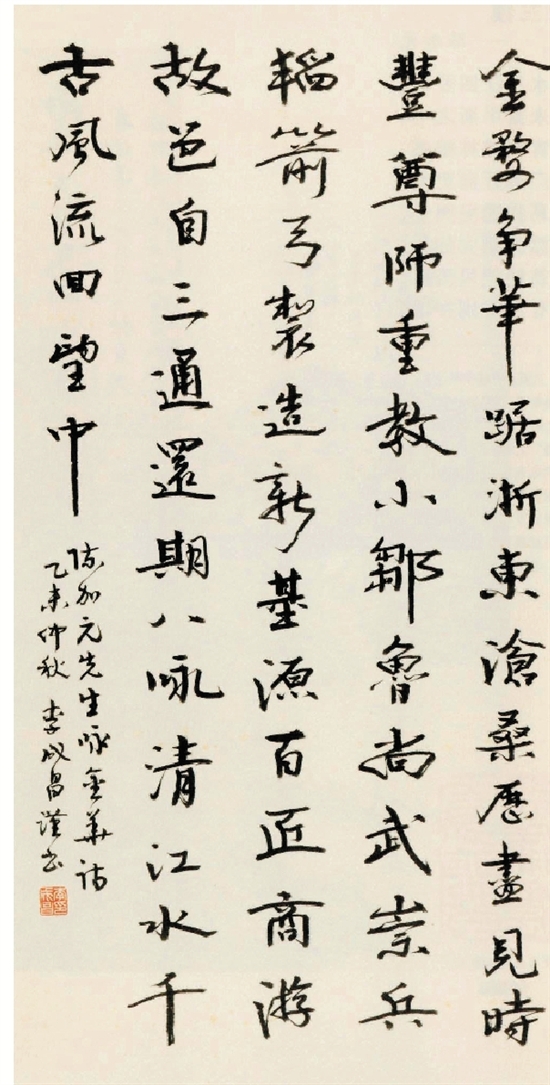 金婺争華踞浙東滄桑歷盡見時
豐尊師重教小鄒魯尚武崇兵
韜箭弓製造新基源百匠商游
故邑自三通還期八咏清江水千
古風流回望中
陈加元先生咏金華诗
乙未仲秋 李成昌谨书